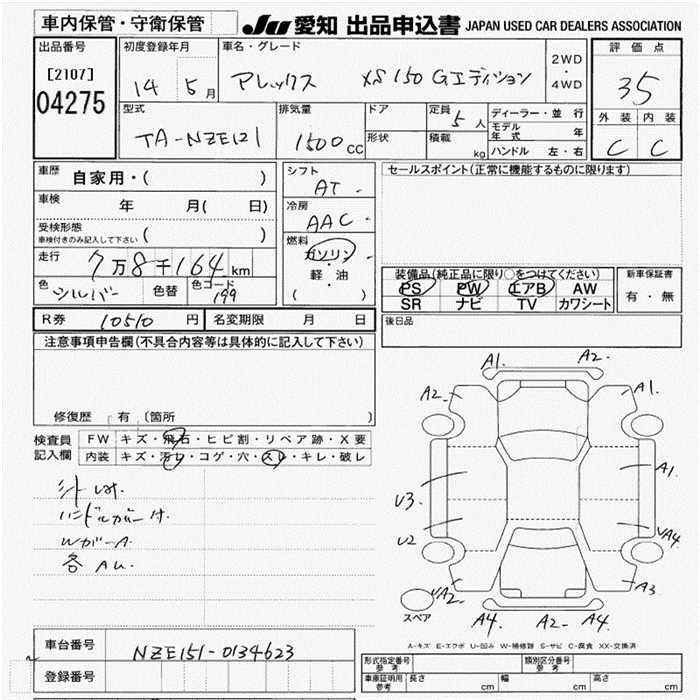 車内保管・守衛保管
JU 愛知 出品申込書 JAPAN USED CAR DEALERS ASSOCIATION
出品番号
[2107]
04275
初度登録年月
14 5月
車名・グレード
アレックス XS150 Gエディション
2WD
・
4WD
評価点
35
外装 内装
C C
型式
TA-NZE121
排気量
1500cc
ドア
形状
定員 5人
積載 kg
ディーラー・並行
モデル年式 年
ハンドル 左・右
車歴 自家用・( )
車検 年 月( 日)
受検形態
車検付きのみ記入して下さい ( )
走行 7万8千164km
色 シルバー 色替 色コード 199
シフト
AT
冷房
AAC
燃料
ガソリン
・
軽・油
( )
セールスポイント(正常に機能するものに限ります)
装備品(純正品に限り○をつけてください)
PS PW エアB AW
SR ナビ TV カワシート
新車保証書
有・無
R券 10510円 名変期限 月 日
後日品
注意事項申告欄(不具合内容等は具体的に記入して下さい)
修復歴 有 〔箇所
検査員
記入欄
FW キズ・飛石・ヒビ割・リペア跡・X要
内装 キズ・汚レ・コゲ・穴・スレ・キレ・破レ
ハンドルカバー付
WガーA
各AU.
A1. A2.
A2 A1.
A1
U3
U2 VA4
VA2 A3
A4 A2 A4
スペア
A-キズ E-エクボ U-凹み W-補修跡 S-サビ C-腐食 XX-交換済
車台番号 NZE151-0134623
登録番号
形式指定番号
参考
類別区分番号
参考
車庫証明用
参考
長さ cm 幅 cm 高さ cm